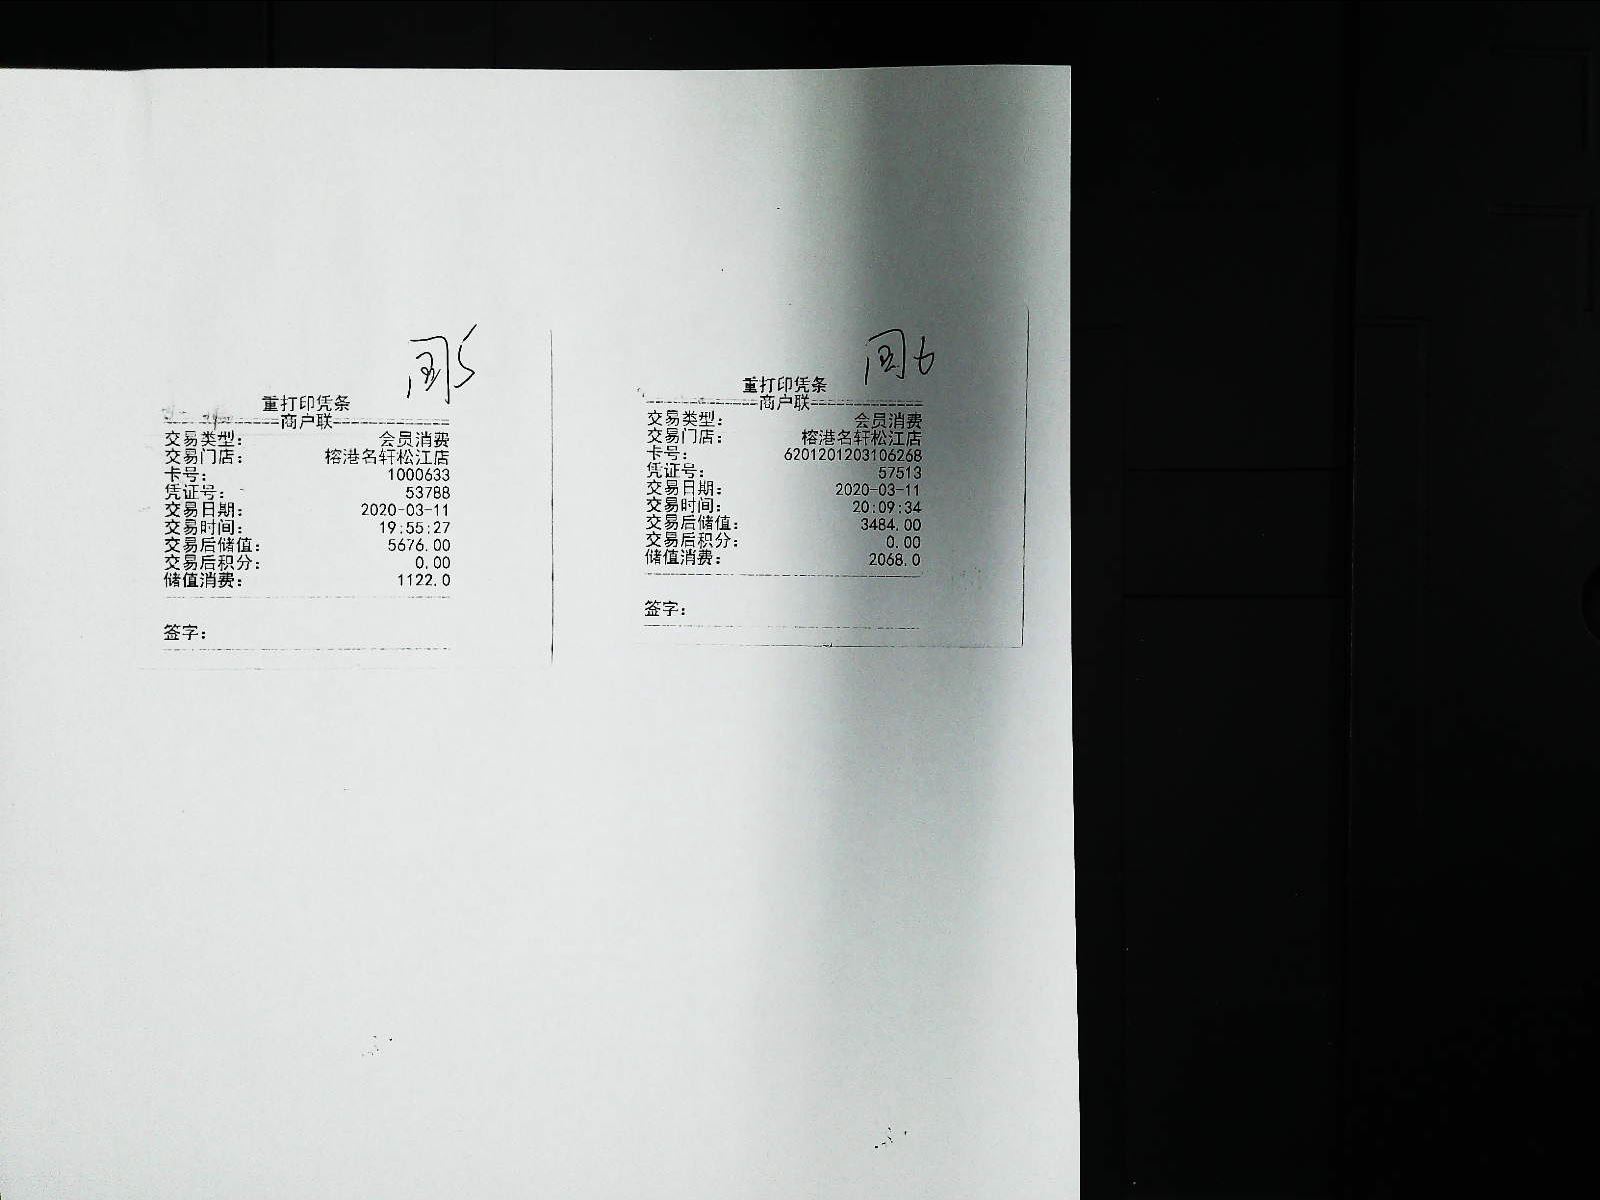 重打印凭条
商户联
交易类型： 会员消费
交易门店： 榕港名轩松江店
卡号： 1000633
凭证号： 53788
交易日期： 2020-03-11
交易时间： 19:55:27
交易后储值： 5676.00
交易后积分： 0.00
储值消费： 1122.0
签字：
重打印凭条
商户联
交易类型： 会员消费
交易门店： 榕港名轩松江店
卡号： 6201201203106268
凭证号： 57513
交易日期： 2020-03-11
交易时间： 20:09:34
交易后储值： 3484.00
交易后积分： 0.00
储值消费： 2068.0
签字：